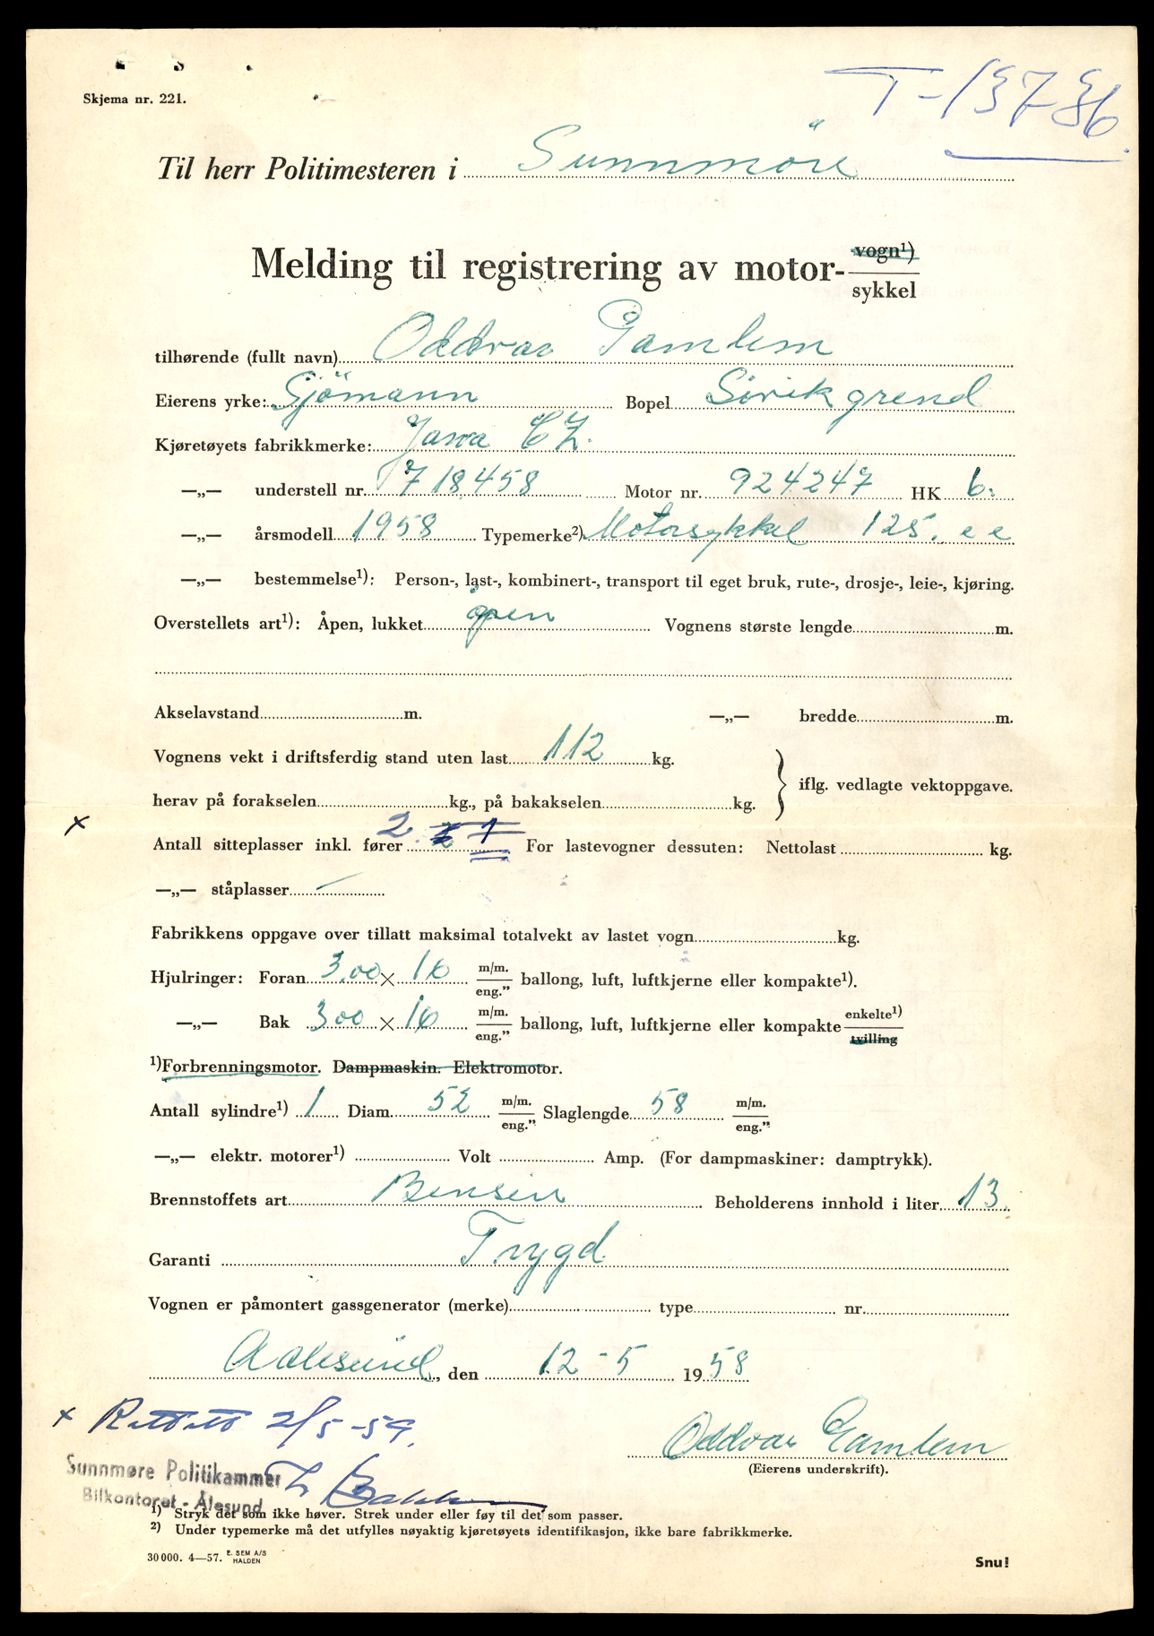 T-13786
Skjema nr. 221.
Til herr Politimesteren i Sunnmöre
Melding til registrering av motor- vogn¹) sykkel
tilhørende (fullt navn) Oddvar Gamlem
Eierens yrke: Sjömann Bopel Sövik grend
Kjøretøyets fabrikkmerke: Jawa CZ.
—„— understell nr. 718458 Motor nr. 924247 HK 6.
—„— årsmodell 1958 Typemerke²) Motorsykkel 125. cc
—„— bestemmelse¹): Person-, last-, kombinert-, transport til eget bruk, rute-, drosje-, leie-, kjøring.
Overstellets art¹): Åpen, lukket åpen Vognens største lengde m.
Akselavstand m. —„— bredde m.
Vognens vekt i driftsferdig stand uten last 112 kg.
herav på forakselen kg., på bakakselen kg. } iflg. vedlagte vektoppgave.
x Antall sitteplasser inkl. fører 2 1 For lastevogner dessuten: Nettolast kg.
—„— ståplasser —
Fabrikkens oppgave over tillatt maksimal totalvekt av lastet vogn kg.
Hjulringer: Foran 3.00 × 16 m/m. eng.” ballong, luft, luftkjerne eller kompakte¹).
—„— Bak 300 × 16 m/m. eng.” ballong, luft, luftkjerne eller kompakte enkelte¹) tvilling
¹)Forbrenningsmotor. Dampmaskin. Elektromotor.
Antall sylindre¹) 1 Diam. 52 m/m. eng.” Slaglengde 58 m/m. eng.”
—„— elektr. motorer¹) Volt Amp. (For dampmaskiner: damptrykk).
Brennstoffets art Bensin Beholderens innhold i liter 13.
Garanti Trygd
Vognen er påmontert gassgenerator (merke) type nr.
Aalesund, den 12-5 1958
x Rettet 2/5-59.
Oddvar Gamlem
(Eierens underskrift).
Sunnmøre Politikammer
Bilkontoret - Ålesund
¹) Stryk det som ikke høver. Strek under eller føy til det som passer.
²) Under typemerke må det utfylles nøyaktig kjøretøyets identifikasjon, ikke bare fabrikkmerke.
30 000. 4—57. E. SEM A/S HALDEN
Snu!